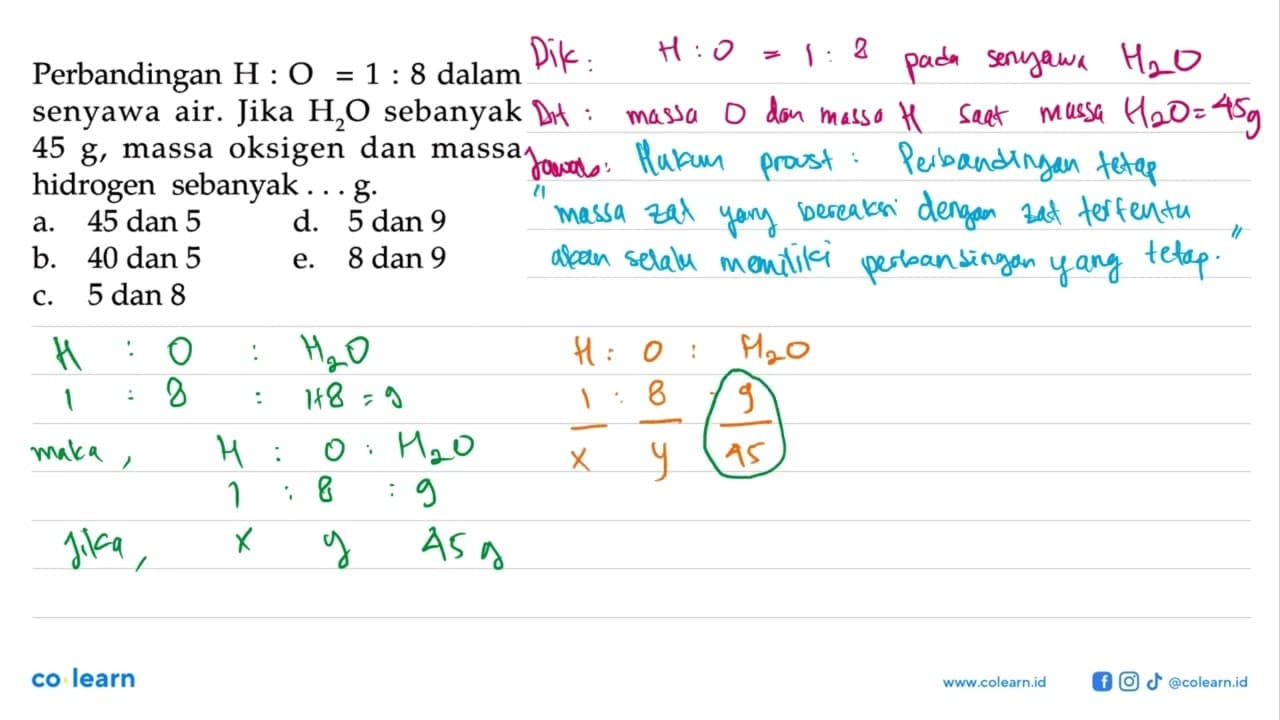 Perbandingan H : O = 1 : 8 dalam
senyawa air. Jika H₂O sebanyak
45 g, massa oksigen dan massa
hidrogen sebanyak . . . g.
a. 45 dan 5 d. 5 dan 9
b. 40 dan 5 e. 8 dan 9
c. 5 dan 8
Dik : H : O = 1 : 8 pada senyawa H₂O
Dit : massa O dan massa H saat massa H₂O = 45g
Jawab : Hukum proust : Perbandingan tetap
"massa zat yang bereaksi dengan zat tertentu
akan selalu memiliki perbandingan yang tetap."
H : O : H₂O
1 : 8 : 1+8 = 9
maka, H : O : H₂O
1 : 8 : 9
Jika, x y 45 g
H : O : H₂O
1 : 8 : 9
x y 45
co·learn
www.colearn.id
@colearn.id